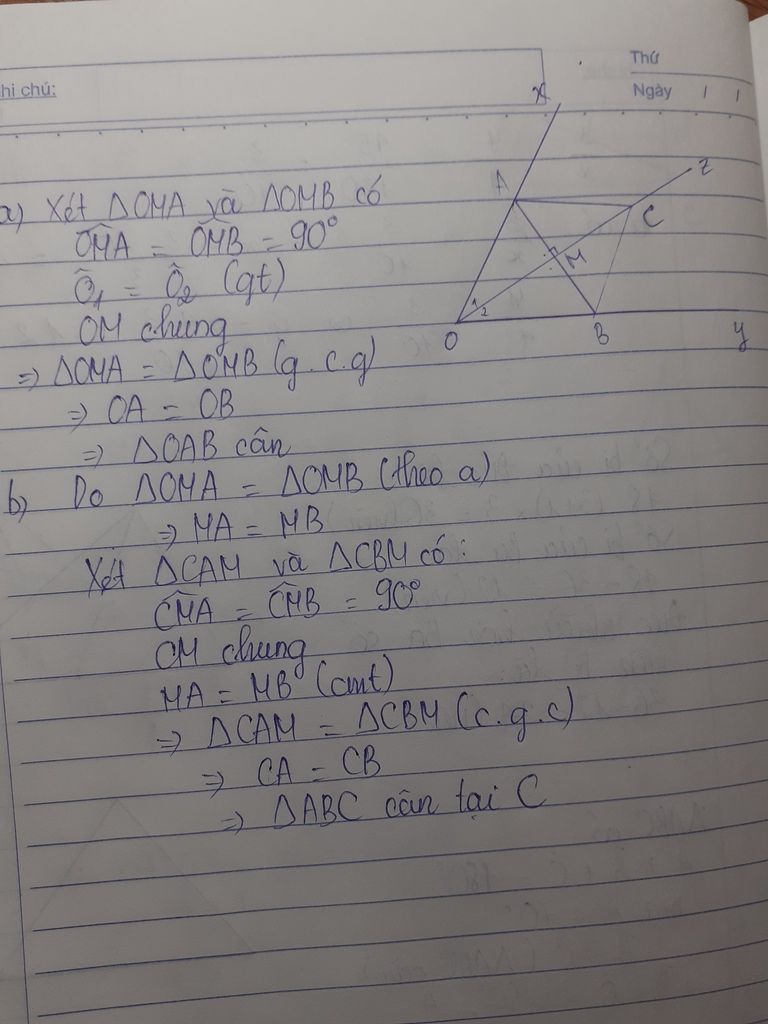 hi chú:
Thứ
Ngày / /
a) Xét ΔOMA và ΔOMB có
OMA = OMB = 90°
Ô1 = Ô2 (gt)
OM chung
=> ΔOMA = ΔOMB (g.c.g)
=> OA = OB
=> ΔOAB cân
b) Do ΔOMA = ΔOMB (theo a)
=> MA = MB
Xét ΔCAM và ΔCBM có:
CMA = CMB = 90°
CM chung
MA = MB (cmt)
=> ΔCAM = ΔCBM (c.g.c)
=> CA = CB
=> ΔABC cân tại C
x
A
z
C
M
1
2
O
B
y